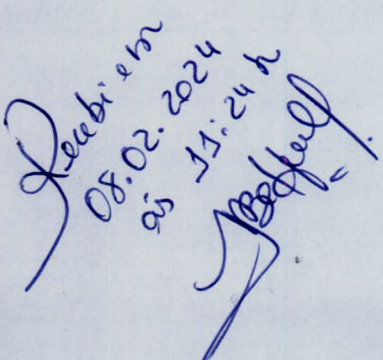 Recebi em
08.02.2024
às 11:24 h